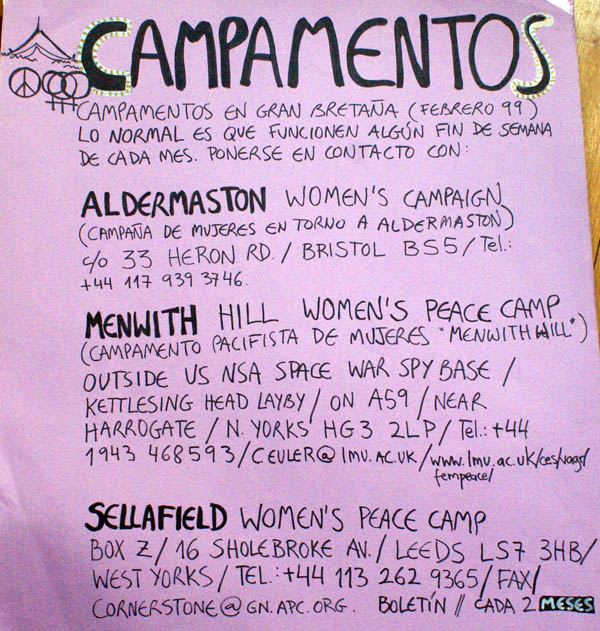 CAMPAMENTOS
CAMPAMENTOS EN GRAN BRETAÑA (FEBRERO 99)
LO NORMAL ES QUE FUNCIONEN ALGÚN FIN DE SEMANA
DE CADA MES. PONERSE EN CONTACTO CON:
ALDERMASTON WOMEN'S CAMPAIGN
(CAMPAÑA DE MUJERES EN TORNO A ALDERMASTON)
c/o 33 HERON RD. / BRISTOL BS5 / Tel.:
+44 117 939 3746.
MENWITH HILL WOMEN'S PEACE CAMP
(CAMPAMENTO PACIFISTA DE MUJERES "MENWITH HILL")
OUTSIDE US NSA SPACE WAR SPY BASE /
KETTLESING HEAD LAYBY / ON A59 / NEAR
HARROGATE / N. YORKS HG3 2LP / Tel.: +44
1943 468593 / CEULER@LMU.AC.UK / www.lmu.ac.uk/ces/vags/
fempeace/
SELLAFIELD WOMEN'S PEACE CAMP
BOX Z / 16 SHOLEBROKE AV. / LEEDS LS7 3HB/
WEST YORKS / TEL.: +44 113 262 9365 / FAX/
CORNERSTONE@GN.APC.ORG. BOLETÍN // CADA 2 MESES